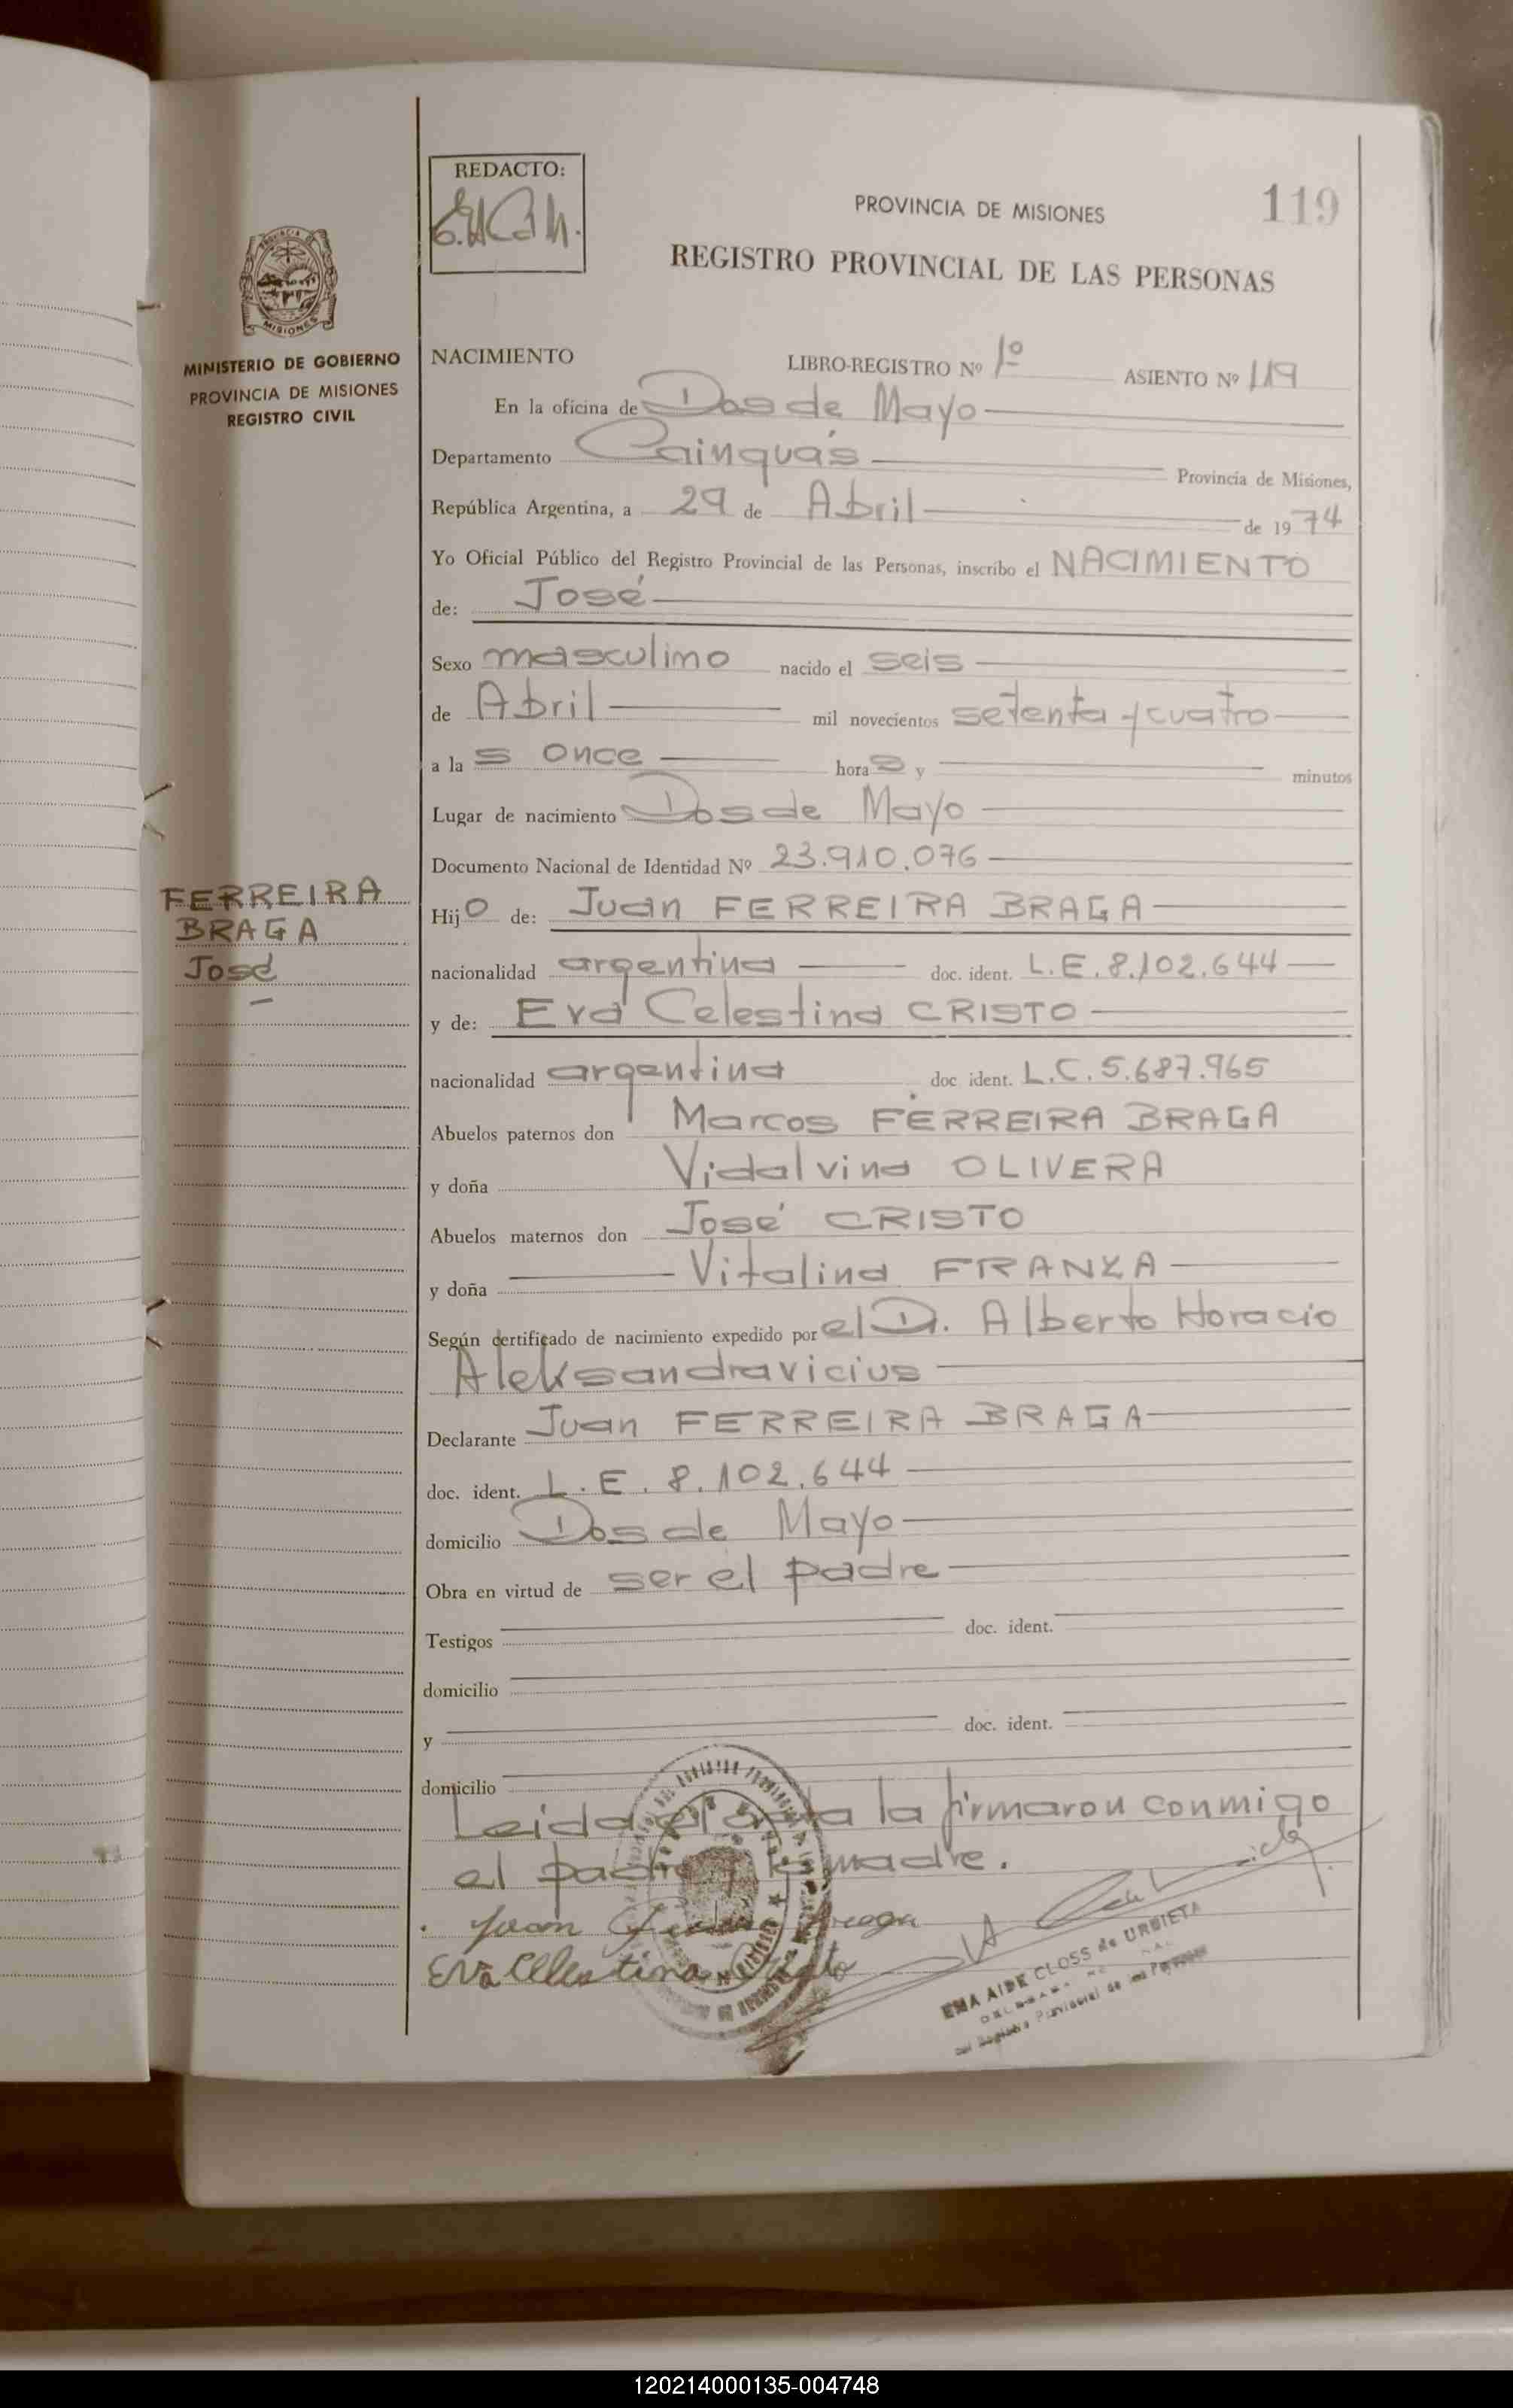 REDACTO:
PROVINCIA DE MISIONES
119
REGISTRO PROVINCIAL DE LAS PERSONAS
PROVINCIA DE
MISIONES
MINISTERIO DE GOBIERNO
PROVINCIA DE MISIONES
REGISTRO CIVIL
NACIMIENTO LIBRO-REGISTRO Nº 1º ASIENTO Nº 119
En la oficina de Dos de Mayo
Departamento Cainguás Provincia de Misiones,
República Argentina, a 29 de Abril de 1974
Yo Oficial Público del Registro Provincial de las Personas, inscribo el NACIMIENTO
de: José
Sexo masculino nacido el seis
de Abril mil novecientos setenta y cuatro
a las once horas y minutos
Lugar de nacimiento Dos de Mayo
Documento Nacional de Identidad Nº 23.910.076
FERREIRA
BRAGA
José
Hijo de: Juan FERREIRA BRAGA
nacionalidad argentina doc. ident. L.E. 8.102.644
y de: Eva Celestina CRISTO
nacionalidad argentina doc ident. L.C. 5.687.965
Abuelos paternos don Marcos FERREIRA BRAGA
y doña Vidalvina OLIVERA
Abuelos maternos don José CRISTO
y doña Vitalina FRANÇA
Según certificado de nacimiento expedido por el D. Alberto Horacio
Aleksandravicius
Declarante Juan FERREIRA BRAGA
doc. ident. L.E. 8.102.644
domicilio Dos de Mayo
Obra en virtud de ser el padre
Testigos doc. ident.
domicilio
y doc. ident.
domicilio
Leida el acta la firmaron conmigo
el padre y la madre.
Juan Ferreira Braga
Eva Celestina Cristo
EMA AIDE CLOSS de URBIETA
del Registro Provincial de las Personas
120214000135-004748